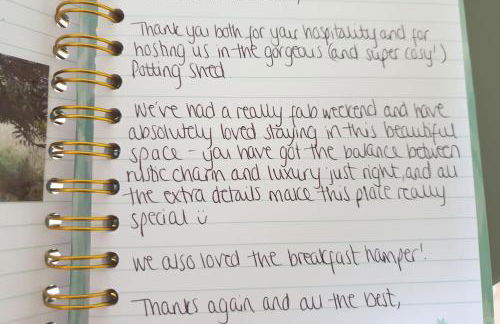 Thank you both for your hospitality and for
hosting us in the gorgeous (and super cosy!)
Potting Shed
We've had a really fab weekend and have
absolutely loved staying in this beautiful
space - you have got the balance between
rustic charm and luxury just right, and all
the extra details make this plate really
special ü
We also loved the breakfast hamper!
Thanks again and all the best,